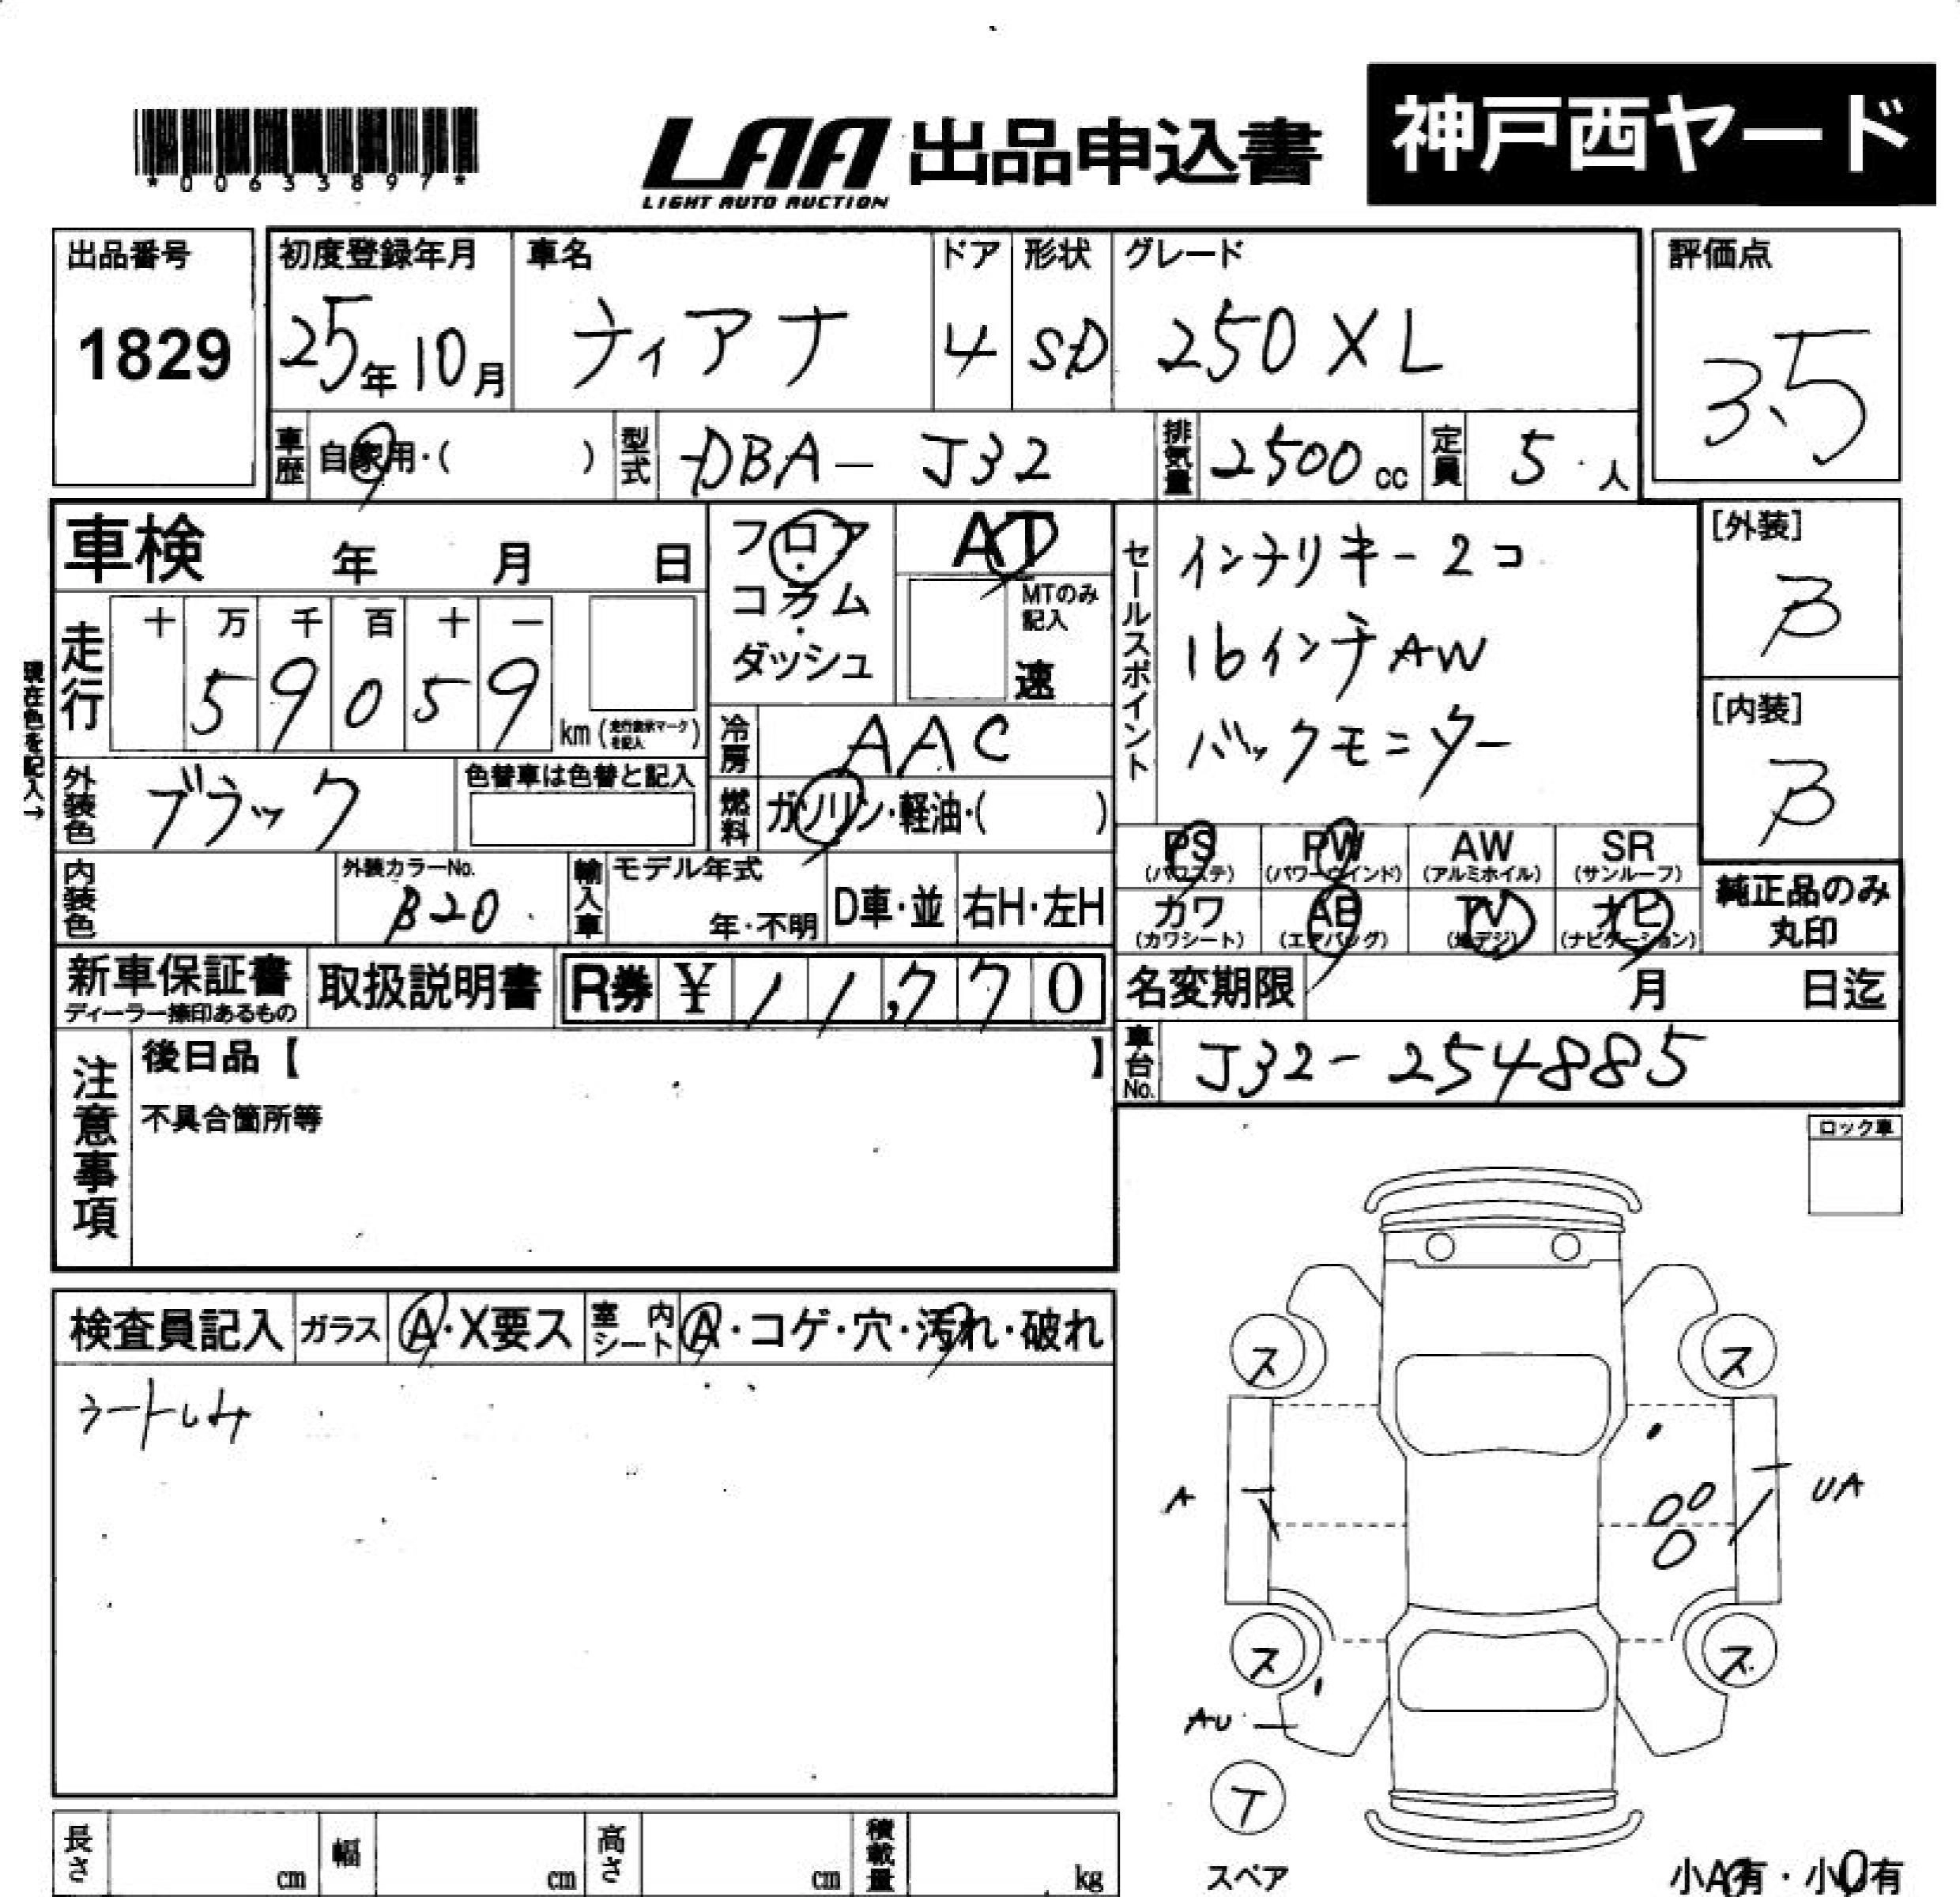 神戸西ヤード
*00633897*
LAA 出品申込書
LIGHT AUTO AUCTION
出品番号 初度登録年月 車名 ドア 形状 グレード 評価点
1829 25年10月 ティアナ 4 SD 250XL 3.5
車歴 自家用・( ) 型式 DBA-J32 排気量 2500cc 定員 5人
車検 年 月 日
フロア・コラム・ダッシュ
AT
MTのみ記入
速
セールスポイント
インテリキー2コ
16インチAW
バックモニター
[外装]
B
[内装]
B
現在色を記入→
走行 十 万 千 百 十 一
59059
km(走行表示マークを記入)
冷房 AAC
外装色 ブラック 色替車は色替と記入
燃料 ガソリン・軽油・( )
PS AW SR
PW
(パワステ) (パワーウインド) (アルミホイル) (サンルーフ)
カワ AB TV ナビ
(カワシート) (エアバッグ) (地デジ) (ナビゲーション)
純正品のみ
丸印
内装色 外装カラーNo. B20 輸入車 モデル年式 年・不明 D車・並 右H・左H
新車保証書 取扱説明書 R券 ¥11,770
ディーラー捺印あるもの
名変期限 月 日迄
車台No. J32-254885
注意事項
後日品【 】
不具合箇所等
ロック車
検査員記入 ガラス A・X要ス 室内シート A・コゲ・穴・汚れ・破れ
シートしみ
ス ス
A UA
ス ス
AU
T
スペア
小A有・小U有
長さ cm 幅 cm 高さ cm 積載量 kg